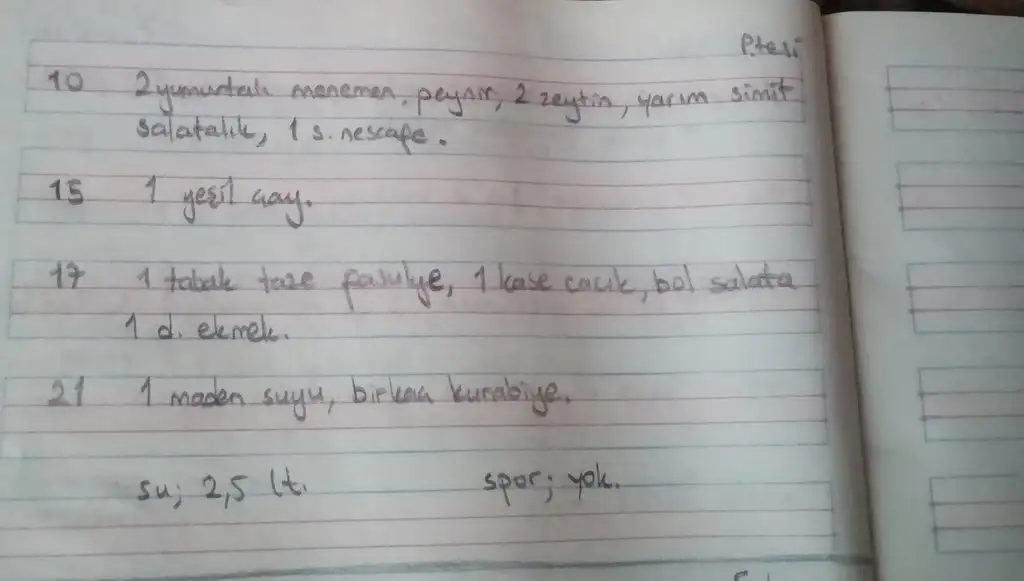 P.tesi
10 2 yumurtalı menemen, peynir, 2 zeytin, yarım simit
salatalık, 1 s. nescafe.
15 1 yeşil çay.
17 1 tabak taze fasulye, 1 kase cacık, bol salata
1 d. ekmek.
21 1 maden suyu, birkaç kurabiye.
su; 2,5 lt. spor; yok.